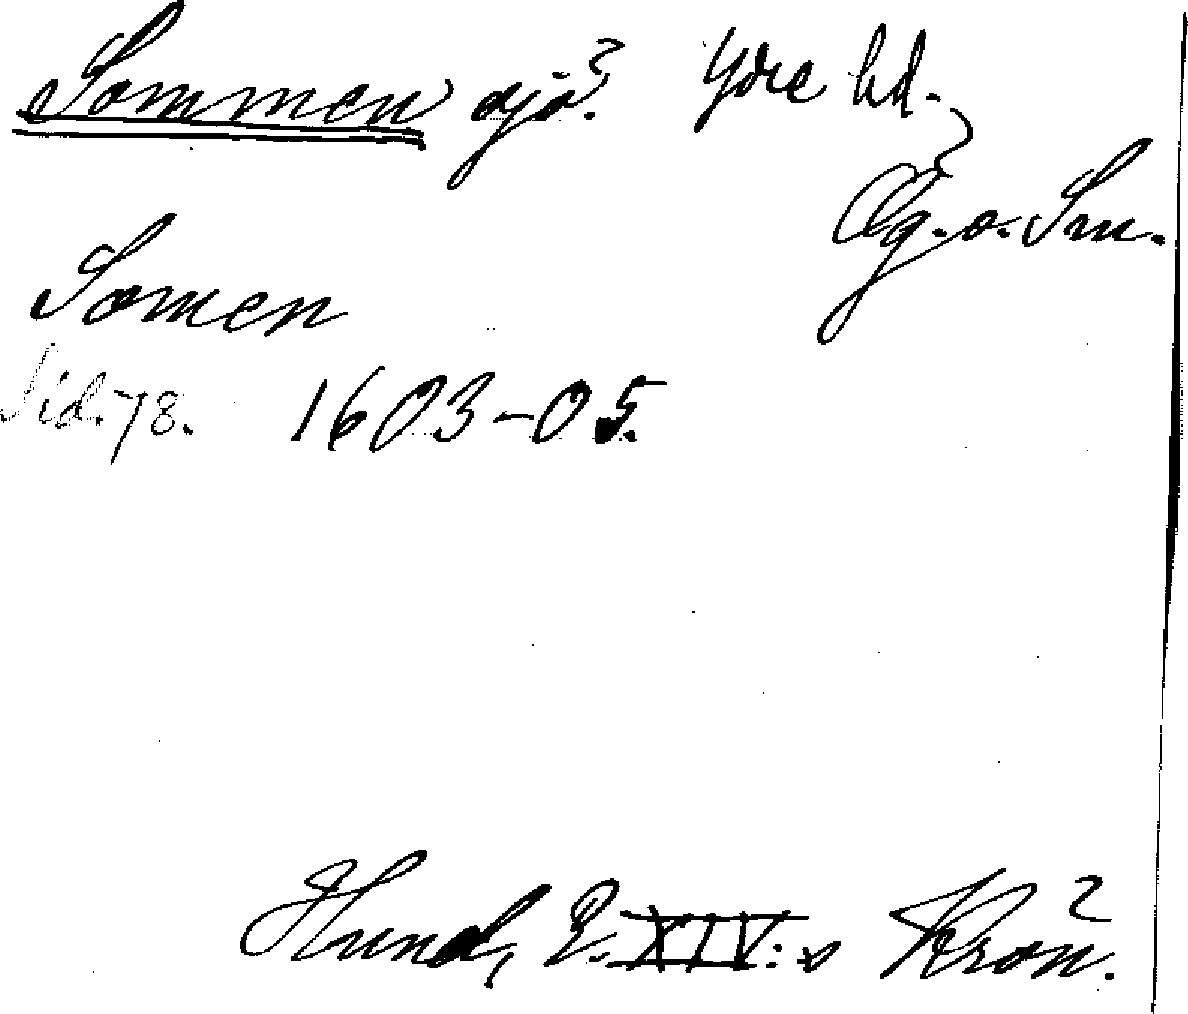 Sommen sjö. Ydre hd.
Ög. o. Sm.
Somen
Sid. 78. 1603-05.
Hund, E. XIV:s Krön.